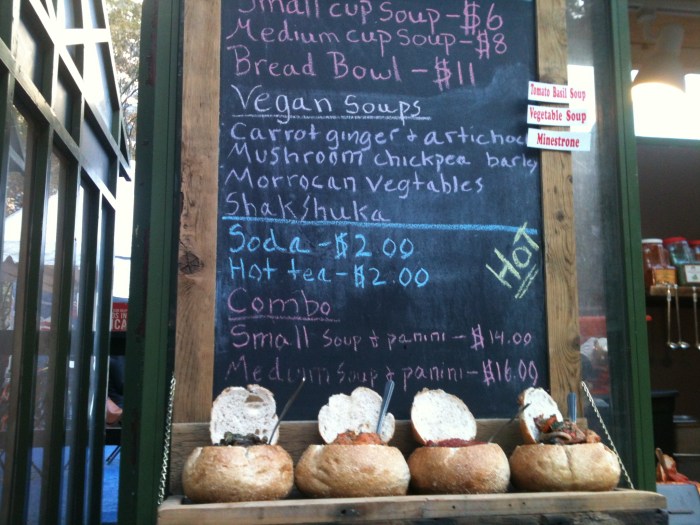 Small cup soup - $6
Medium cup soup - $8
Bread Bowl - $11
Vegan Soups
Carrot ginger + artichoc
Mushroom chickpea barley
Morrocan vegtables
Shakshuka
Soda - $2.00
Hot tea - $2.00
HOT
Combo
Small soup + panini - $14.00
Medium soup + panini - $16.00
Tomato Basil Soup
Vegetable Soup
Minestrone